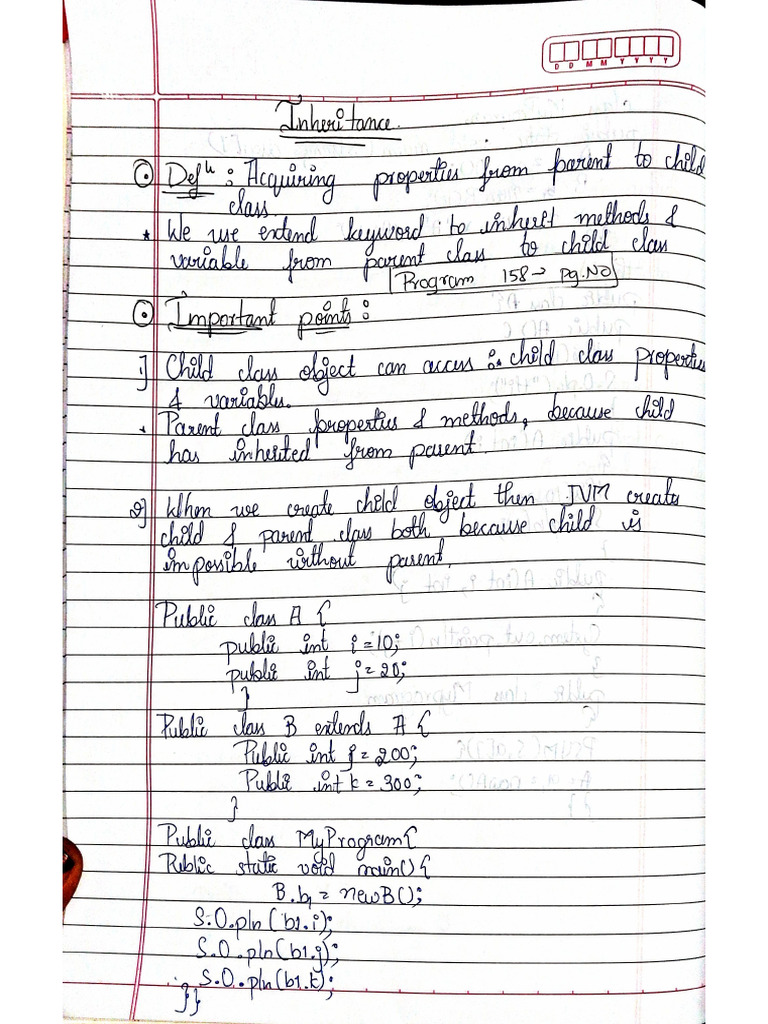 D D M M Y Y Y Y
Inheritance.
Defn : Acquiring properties from parent to child
class.
* We use extend keyword to inherit methods &
variable from parent class to child class
Program 158 → pg.NO
Important points :
1] Child class object can access : child class properties
& variables.
Parent class properties & methods, because child
has inherited from parent.
2] When we create child object then JVM create
child & parent class both because child is
impossible without parent.
Public class A {
public int i = 10;
public int j = 20;
}
Public class B extends A {
Public int j = 200;
Public int k = 300;
}
Public class MyProgram {
Public static void main() {
B.b1 = newB();
S.O.pln(b1.i);
S.O.pln(b1.j);
S.O.pln(b1.k);
}}